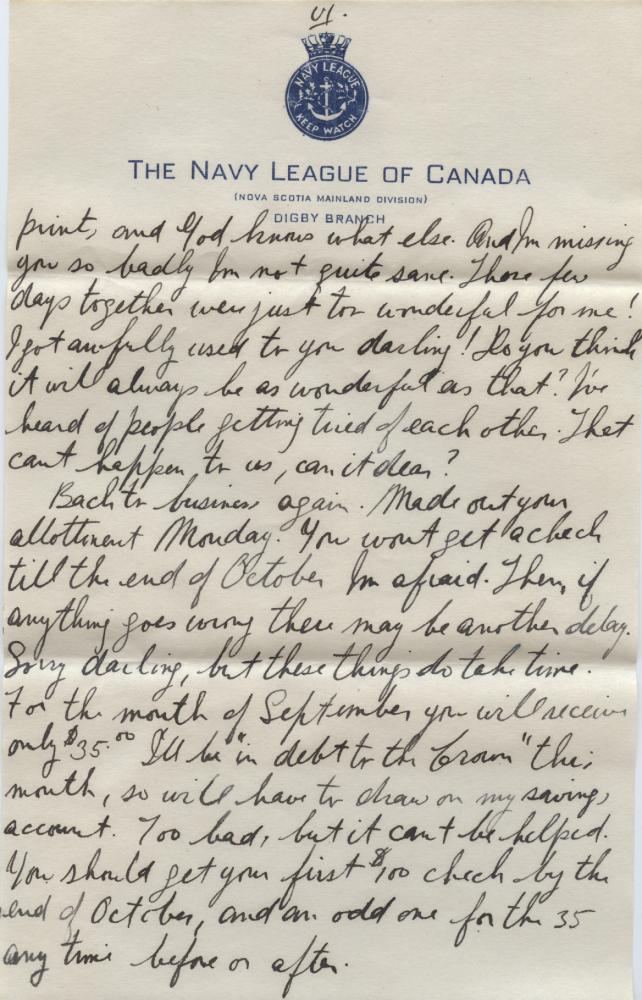 VI.
NAVY LEAGUE
KEEP WATCH
THE NAVY LEAGUE OF CANADA
(NOVA SCOTIA MAINLAND DIVISION)
DIGBY BRANCH
print, and God knows what else. And I'm missing
you so badly I'm not quite sane. Those few
days together were just too wonderful for me!
I got awfully used to you darling! Do you think
it will always be as wonderful as that? I've
heard of people getting tired of each other. That
can't happen to us, can it dear?
Back to business again. Made out your
allottment Monday. You wont get a check
till the end of October I'm afraid. Then, if
anything goes wrong there may be another delay.
Sorry darling, but these things do take time.
For the month of September you will receive
only $35.00 I'll be "in debt to the Crown" this
month, so will have to draw on my savings
account. Too bad, but it can't be helped.
You should get your first $100 check by the
end of October, and an odd one for the 35
any time before or after.